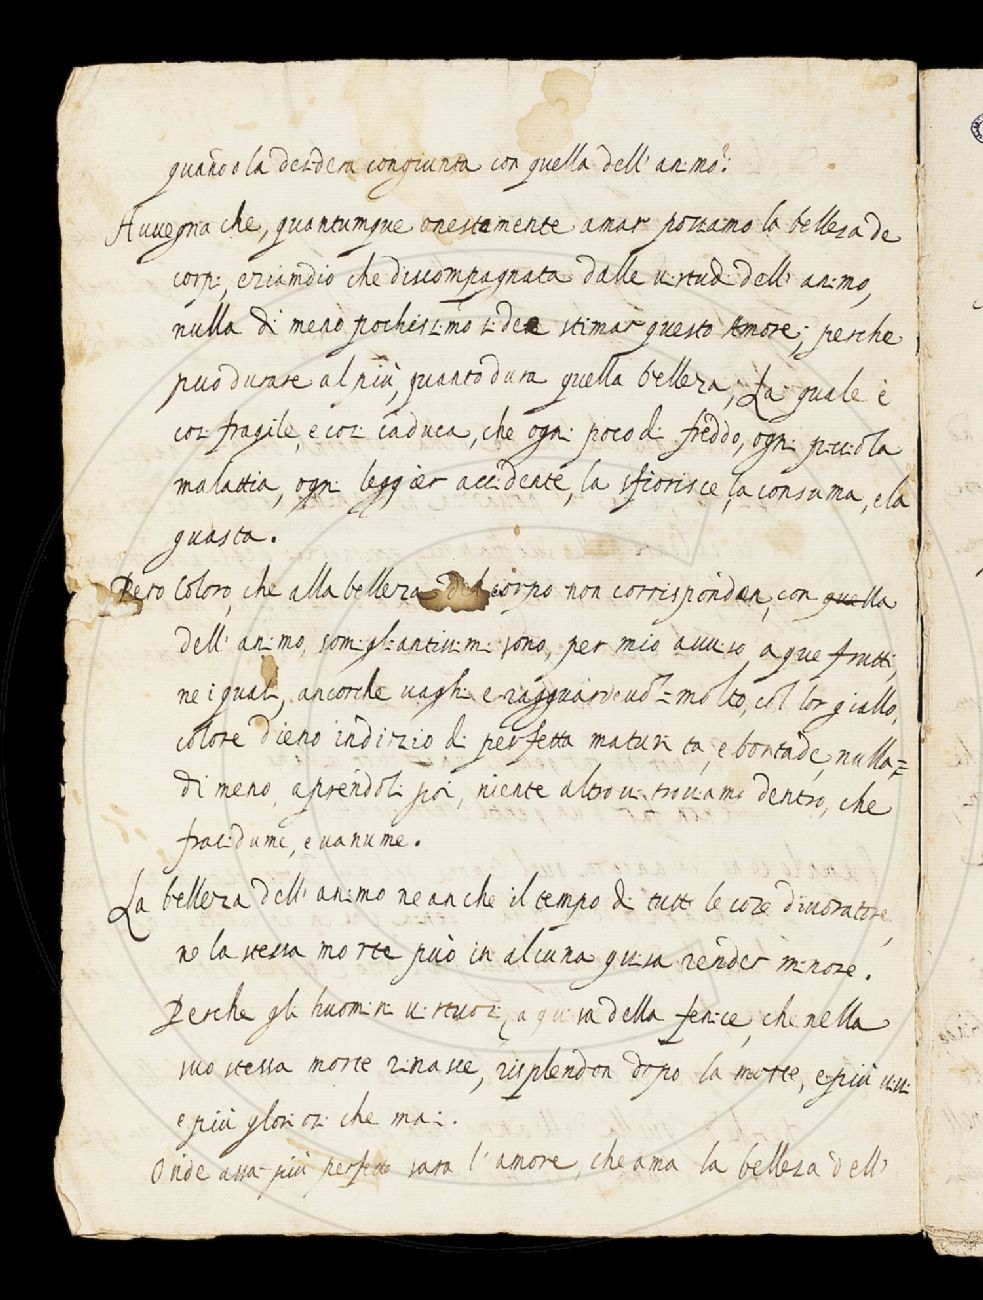 quando la desidera congiunta con quella dell' animo?
Auuegna che, quantumque onestamente amar possamo la bellezza de
corpi, eziamdio che discompagnata dalle uirtudi dell' animo,
nulla di meno pochissimo si dee stimar questo Amore; perche
puo durare al più, quanto dura quella bellezza; La quale è
cosi fragile, e cosi caduca, che ogni poco di freddo, ogni picciola
malattia, ogni leggier accidente, la sfiorisce, la consuma, e la
guasta.
Pero Coloro, che alla bellezza del corpo non corrispondon, con quella
dell' animo, somigliantissimi sono, per mio auuiso, a que frutti,
ne i quali, ancorche uaghi e ragguardeuoli molto, col lor giallo,
colore dieno indizio di perfetta maturita, e bontade, nulla=
di meno, aprendoli poi, niente altro ui trouiamo dentro, che
fracidume, e uanume.
La bellezza dell' animo ne anche il tempo di tutte le cose diuoratore,
ne la stessa morte può in alcuna guisa render minore.
Perche gli huomini uirtuosi, a guisa della fenice, che nella
sua stessa morte rinasce, risplendon dopo la morte, e più uiui
e più gloriosi che mai.
Onde assai più perfetto sara l' amore, che ama la bellezza dell'